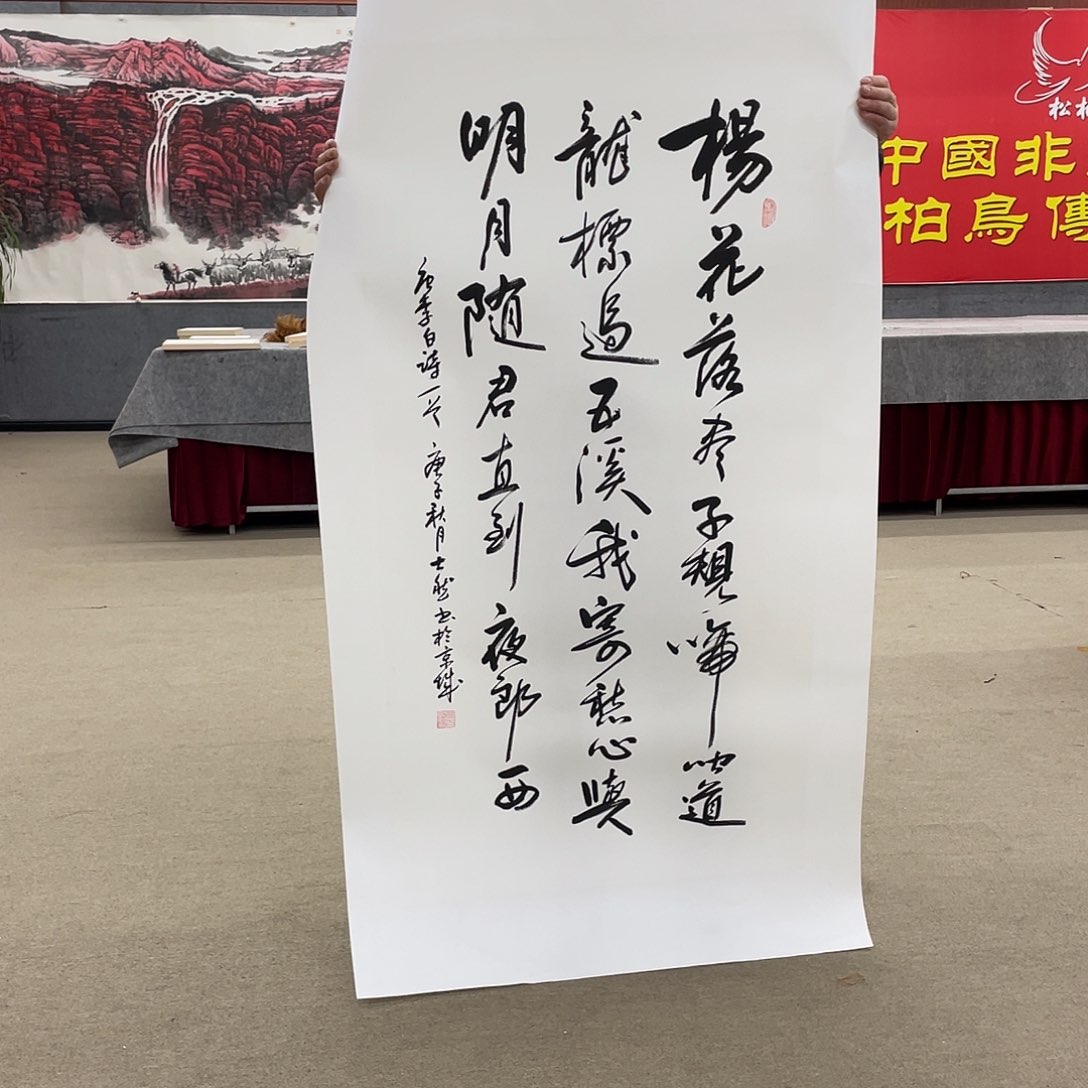 楊花落尽子規啼闻道
龍標過五溪我寄愁心與
明月随君直到夜郎西
唐李白詩一首 庚子秋月士书於京城
松柏
中國非
柏鳥傳